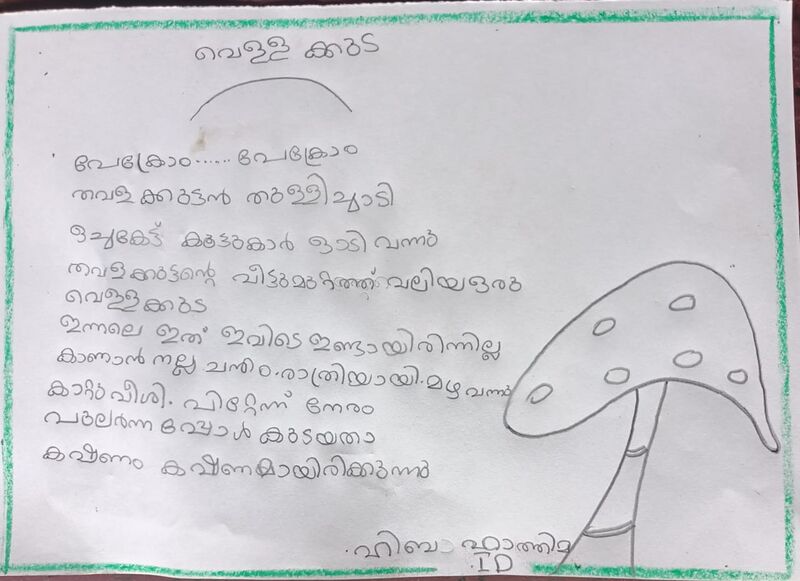 വെള്ള ക്കുട
പേക്രോം...... പേക്രോം
തവളക്കുട്ടൻ തുള്ളിച്ചാടി
ഒച്ചകേട്ട് കൂട്ടുകാർ ഓടി വന്നു
തവളക്കുട്ടന്റെ വീട്ടുമുറ്റത്ത് വലിയഒരു
വെള്ളക്കുട
ഇന്നലെ ഇത് ഇവിടെ ഇണ്ടായിരിന്നില്ല
കാണാൻ നല്ല ചന്തം.രാത്രിയായി.മഴ വന്നു
കാറ്റുവീശി. പിറ്റേന്ന് നേരം
പുലർന്നപ്പോൾ കുടയതാ
കഷ്ണം കഷ്ണമായിരിക്കുന്നു
ഹിബ ഫാത്തിമ
1D